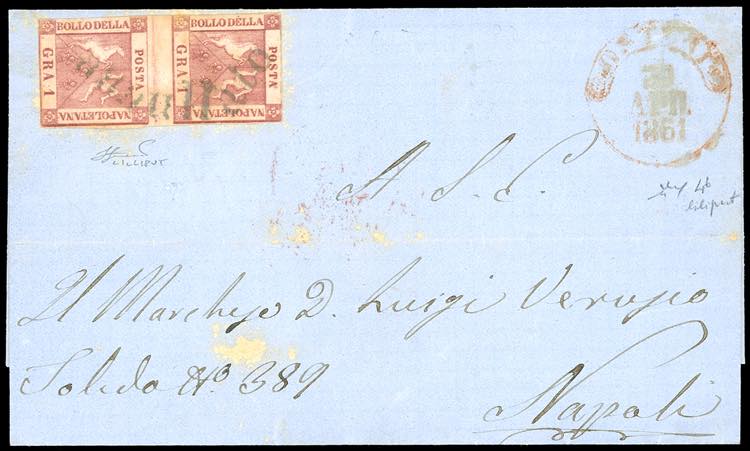 BOLLO DELLA
POSTA
NAPOLETANA
GRA 1
BOLLO DELLA
POSTA
NAPOLETANA
GRA 1
APR.
1861
LILLIPUT
A S. E.
Il Marchese D. Luigi Verusio
Toledo No. 389
Napoli